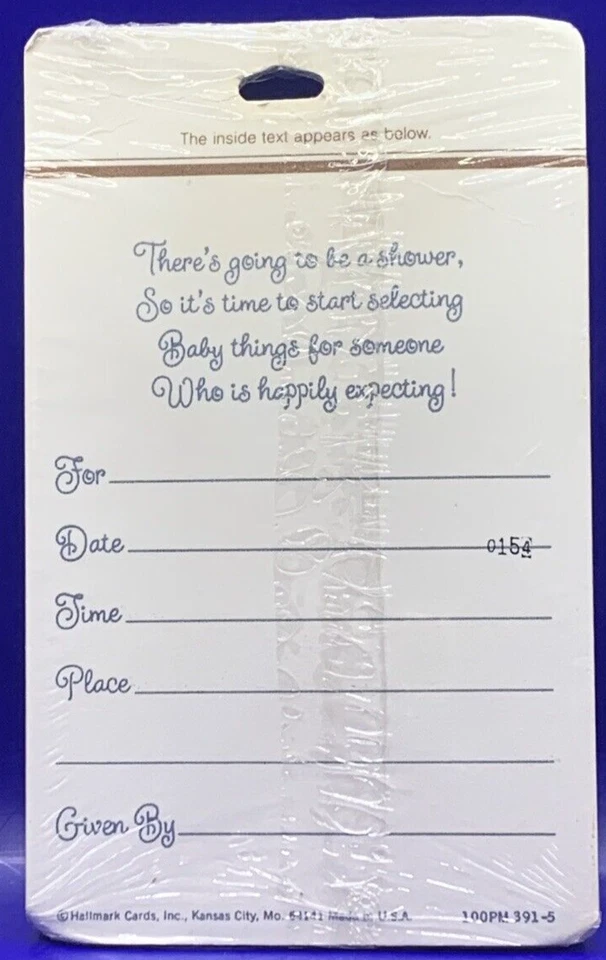 The inside text appears as below.
There's going to be a shower,
So it's time to start selecting
Baby things for someone
Who is happily expecting!
For
Date 0154
Time
Place
Given By
©Hallmark Cards, Inc., Kansas City, Mo. 64141 Made in U.S.A. 100PM 391-5